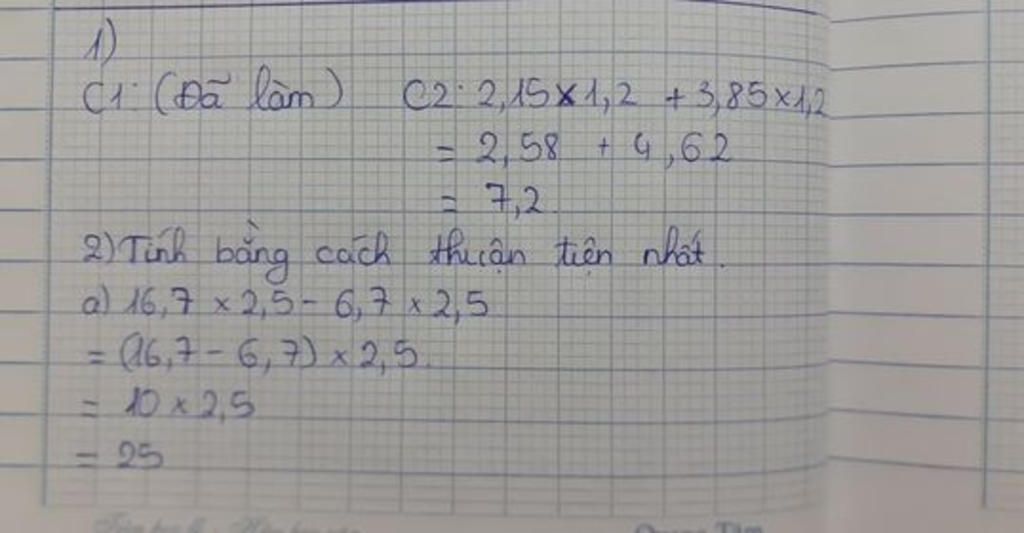 1)
C1: (Đã làm) C2: 2,15×1,2 + 3,85×1,2
= 2,58 + 4,62
= 7,2
2) Tính bằng cách thuận tiện nhất.
a) 16,7 × 2,5 - 6,7 × 2,5
= (16,7 - 6,7) × 2,5
= 10 × 2,5
= 25